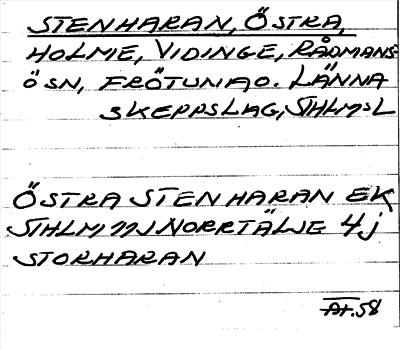 STENHARAN, ÖSTRA,
HOLME, VIDINGE, RÅDMANS-
ÖSN, FRÖTUNA O. LÄNNA
SKEPPSLAG, STHLMS L
ÖSTRA STENHARAN EK
STHLM NORRTÄLJE 4j
STORHARAN
AH.58